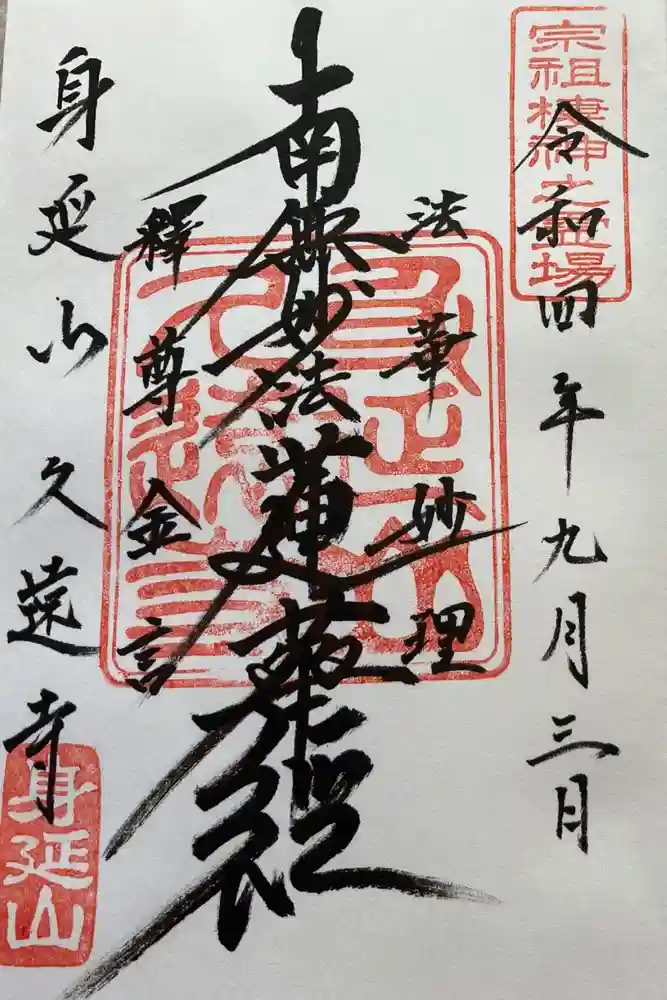 宗祖棲神之霊場
令和四年九月三日
法華妙理
南無妙法蓮華経
釋尊金言
身延山久遠寺
身延山